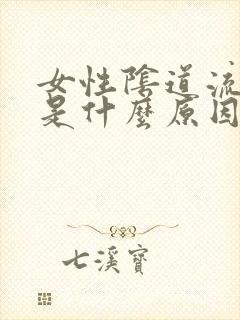 女性陰道流
是什麼原因
七溪寶